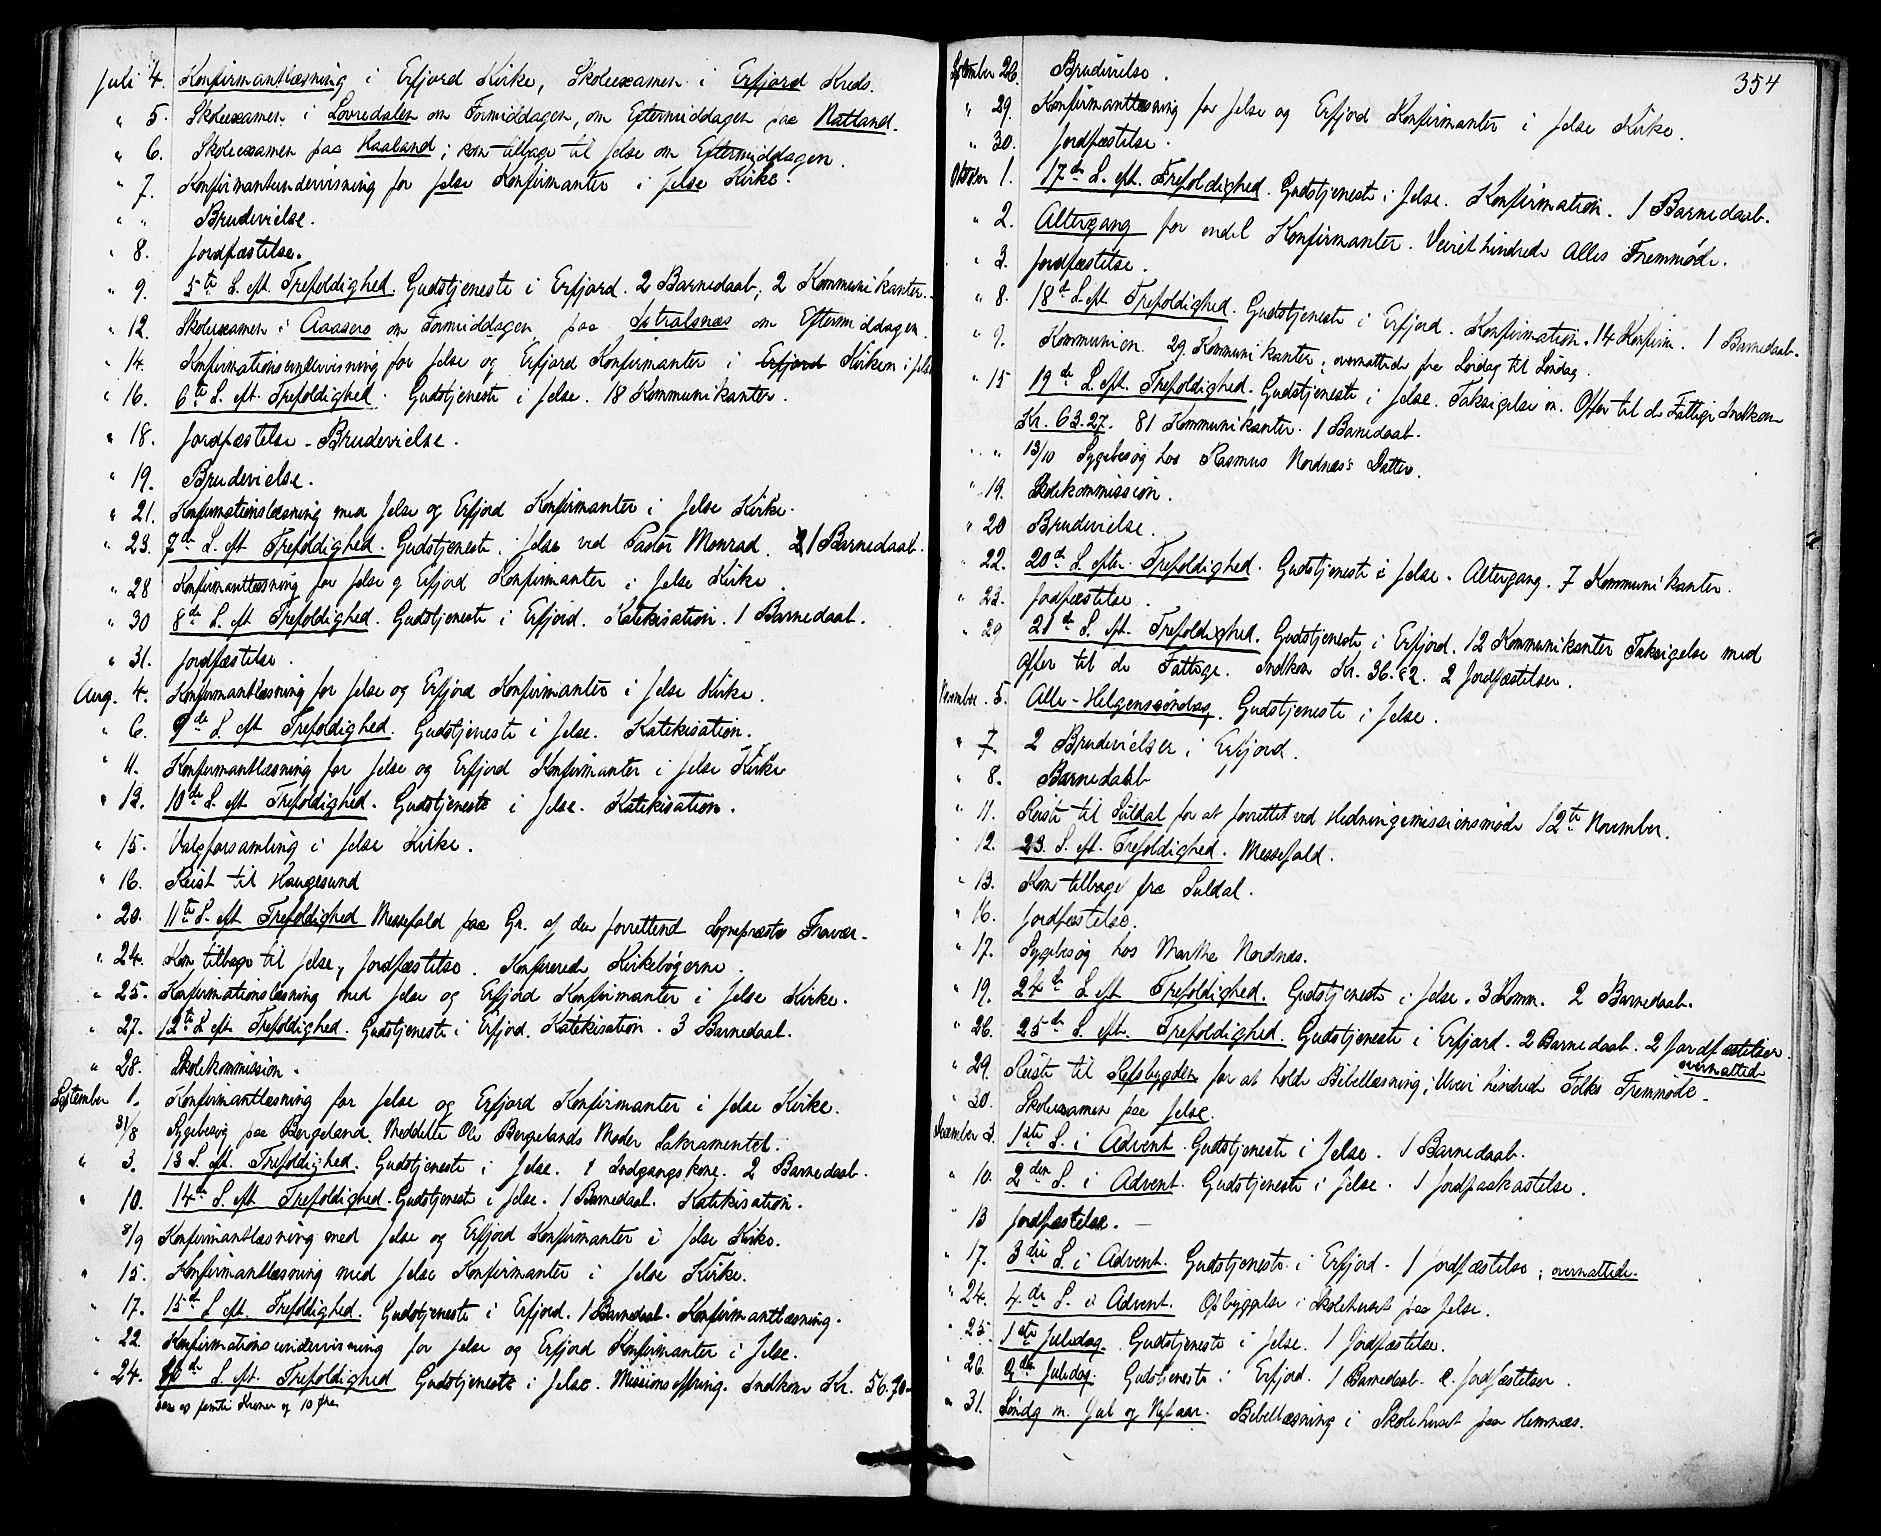 Juli 4. Konfirmantlæsning i Erfjord Kirke, Skoleexamen i Erfjord Kreds.
" 5. Skoleexamen i Lovredalen om Formiddagen, om Eftermiddagen paa Natland.
" 6. Skoleexamen paa Haaland; kom tilbage til Jelse om Eftermiddagen.
" 7. Konfirmantundervisning for Jelse Konfirmanter i Jelse Kirke.
" " Brudevielse.
" 8. Jordfæstelse.
" 9. 5te S. eft. Trefoldighed. Gudstjeneste i Erfjord. 2 Barnedaab; 2 Kommunikanter.
" 12. Skoleexamen i om Formiddagen, paa om Eftermiddagen.
" 14. Konfirmationsundervisning for Jelse og Erfjord Konfirmanter i Erfjord Kirken i Jelse
" 16. 6te S. eft. Trefoldighed. Gudstjeneste i Jelse. 18 Kommunikanter.
" 18. Jordfæstelse - Brudevielse.
" 19. Brudevielse.
" 21. Konfirmationslæsning med Jelse og Erfjord Konfirmanter i Jelse Kirke.
" 23. 7de S. eft. Trefoldighed. Gudstjeneste i Jelse ved Pastor Monrad. 1 Barnedaab.
" 28 Konfirmantlæsning for Jelse og Erfjord Konfirmanter i Jelse Kirke.
" 30 8de S. eft. Trefoldighed. Gudstjeneste i Erfjord. Katekisation. 1 Barnedaab.
" 31. Jordfæstelse.
Aug. 4. Konfirmantlæsning for Jelse og Erfjord Konfirmanter i Jelse Kirke.
" 6. 9de S. eft. Trefoldighed. Gudstjeneste i Jelse. Katekisation.
" 11. Konfirmantlæsning for Jelse og Erfjord Konfirmanter i Jelse Kirke
" 13. 10de S. eft. Trefoldighed. Gudstjeneste i Jelse. Katekisation.
" 15. Valgforsamling i Jelse Kirke.
" 16. Reist til Haugesund
" 20. 11te S. eft. Trefoldighed Messefald paa Gr. af den forrettend Sogneprests Fravær.
" 24. Kom tilbage til Jelse, Jordfæstelse. Konfererede Kirkebøgerne.
" 25. Konfirmationslæsning med Jelse og Erfjord Konfirmanter i Jelse Kirke.
" 27. 12te S. eft. Trefoldighed. Gudstjeneste i Erfjord. Katekisation. 3 Barnedaab.
" 28. Skolekommission.
September 1. Konfirmantlæsning for Jelse og Erfjord Konfirmanter i Jelse Kirke.
31/8 Sygebesøg paa Bergeland. Meddelte Ole Bergelands Moder Sakramentet.
" 3. 13 S. eft. Trefoldighed. Gudstjeneste i Jelse. 1 Indgangskone. 2 Barnedaab.
" 10. 14de S. eft. Trefoldighed. Gudstjeneste i Jelse. 1 Barnedaab. Katekisation.
8/9 Konfirmantlæsning med Jelse og Erfjord Konfirmanter i Jelse Kirke.
" 15. Konfirmantlæsning med Jelse Konfirmanter i Jelse Kirke.
" 17. 15de S. eft. Trefoldighed. Gudstjeneste i Erfjord. 1 Barnedaab. Konfirmantlæsning.
" 22 Konfirmationsundervisning for Jelse og Erfjord Konfirmanter i Jelse.
" 24. 16de S. eft. Trefoldighed Gudstjeneste i Jelse. Missionsoffring. Indkom Kr. 56.90
Kroner og 10 Øre
354
September 26. Brudevielse.
" 29. Konfirmantlæsning for Jelse og Erfjord Konfirmanter i Jelse Kirke.
" 30. Jordfæstelse.
Oktober 1. 17de S. eft. Trefoldighed. Gudstjeneste i Jelse. Konfirmation. 1 Barnedaab.
" 2. Altergang for endel Konfirmanter. Veiret hindrede Alles Fremmøde.
" 3. Jordfæstelse.
" 8. 18de S. eft. Trefoldighed. Gudstjeneste i Erfjord. Konfirmation. 14 Konfirm. 1 Barnedaab.
" 9. Kommunion 29 Kommunikanter; overnattede fra Lørdag til Søndag.
" 15 19de S. eft. Trefoldighed. Gudstjeneste i Jelse. Taksigelse m. Offer til de Fattige Indkom
Kr. 63.27. 81 Kommunikanter. 1 Barnedaab.
" " 13/10 Sygebesøg hos Rasmus Nordnæs's Datter.
" 19. Skolekommission.
" 20 Brudevielse.
" 22. 20de S. efter Trefoldighed. Gudstjeneste i Jelse. Altergang. 7 Kommunikanter.
" 23. Jordfæstelse.
" 29 21de S. eft. Trefoldighed. Gudstjeneste i Erfjord. 12 Kommunikanter Taksigelse med
Offer til de Fattige. Indkom Kr. 36.82. 2 Jordfæstelser.
November. 5. Alle-Helgenssøndag. Gudstjeneste i Jelse.
" 7. 2 Brudevielser i Erfjord.
" 8. Barnedaab
" 11. Reiste til Suldal for at forrettet ved Hedningemissionsmøde 12te November.
" 12. 23. S. eft. Trefoldighed. Messefald.
" 13. Kom tilbage fra Suldal.
" 16. Jordfæstelse.
" 17. Sygebesøg hos Marthe Nordnæs.
" 19. 24de S. eft. Trefoldighed. Gudstjeneste i Jelse. 3 Komm. 2 Barnedaab.
" 26. 25de S. eft. Trefoldighed. Gudstjeneste i Erfjord. 2 Barnedaab. 2 Jordfæstelser.
overnattede
" 29. Reiste til for at holde Bibellæsning; Uveir hindrede Folks Fremmøde.
" 30. Skoleexamen paa Jelse.
December 3. 1ste S. i Advent. Gudstjeneste i Jelse. 1 Barnedaab.
" 10. 2den S. i Advent. Gudstjeneste i Jelse. 1 Jordpaakastelse.
" 13 Jordfæstelse. —
" 17. 3die S. i Advent. Gudstjeneste i Erfjord. 1 Jordfæstelse; overnattede.
" 24. 4de S. i Advent. Opbyggelse i Skolehuset paa Jelse.
" 25. 1ste Juledag. Gudstjeneste i Jelse. 1 Jordfæstelse.
" 26. 2den Juledag. Gudstjeneste i Erfjord. 1 Barnedaab. 2 Jordfæstelser.
" 31. Søndg m. Jul og Nytaar. Bibellæsning i Skolehuset paa Hemnæs.